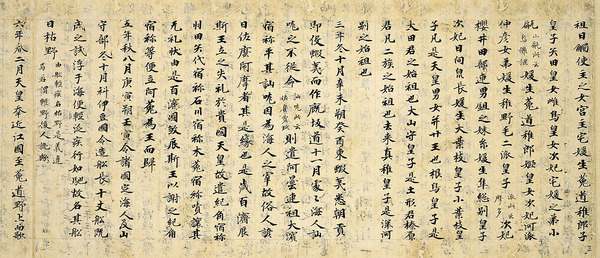 祖日觸使主之女宮主宅媛生菟道稚郎子
皇子矢田皇女雌鳥皇女次妃宅媛之弟小
甂媛生菟道稚郎姬皇女次妃河派
仲彥女弟媛生稚野毛二派皇子 次妃
櫻井田部連男鉏之妹糸媛生隼総別皇子
次妃日向泉長媛生大葉枝皇子小葉枝皇
子凡是天皇男女并廿王也根鳥皇子是
大田君之始祖也大山守皇子是土形君榛原
君凡二族之始祖也去来真稚皇子是深河
別之始祖也
三年冬十月辛未朔癸酉東蝦夷悉朝貢
即役蝦夷而作厩坂道十一月處々海人訕
哤之不従命 則遣阿曇連祖大濱
宿祢平其訕哤因為海人之宰故俗人諺
曰佐麼阿摩者其是縁也是歲百濟辰
斯王立之失礼於貴國天皇故遣紀角宿祢
羽田矢代宿祢石川宿祢木菟宿祢嘖讓其
无礼状由是百濟國煞辰斯王以謝之紀角
宿祢等便立阿花為王而歸
五年秋八月庚寅朔壬寅令諸國定海人及山
守部冬十月科伊豆國令造舩長十丈舩既
成之試浮于海便輕泛疾行如馳故名其舩
日枯野 由舩輕疾名枯野是義違焉若謂輕野後人訛歟
六年春二月天皇幸近江國至菟道野上而歌